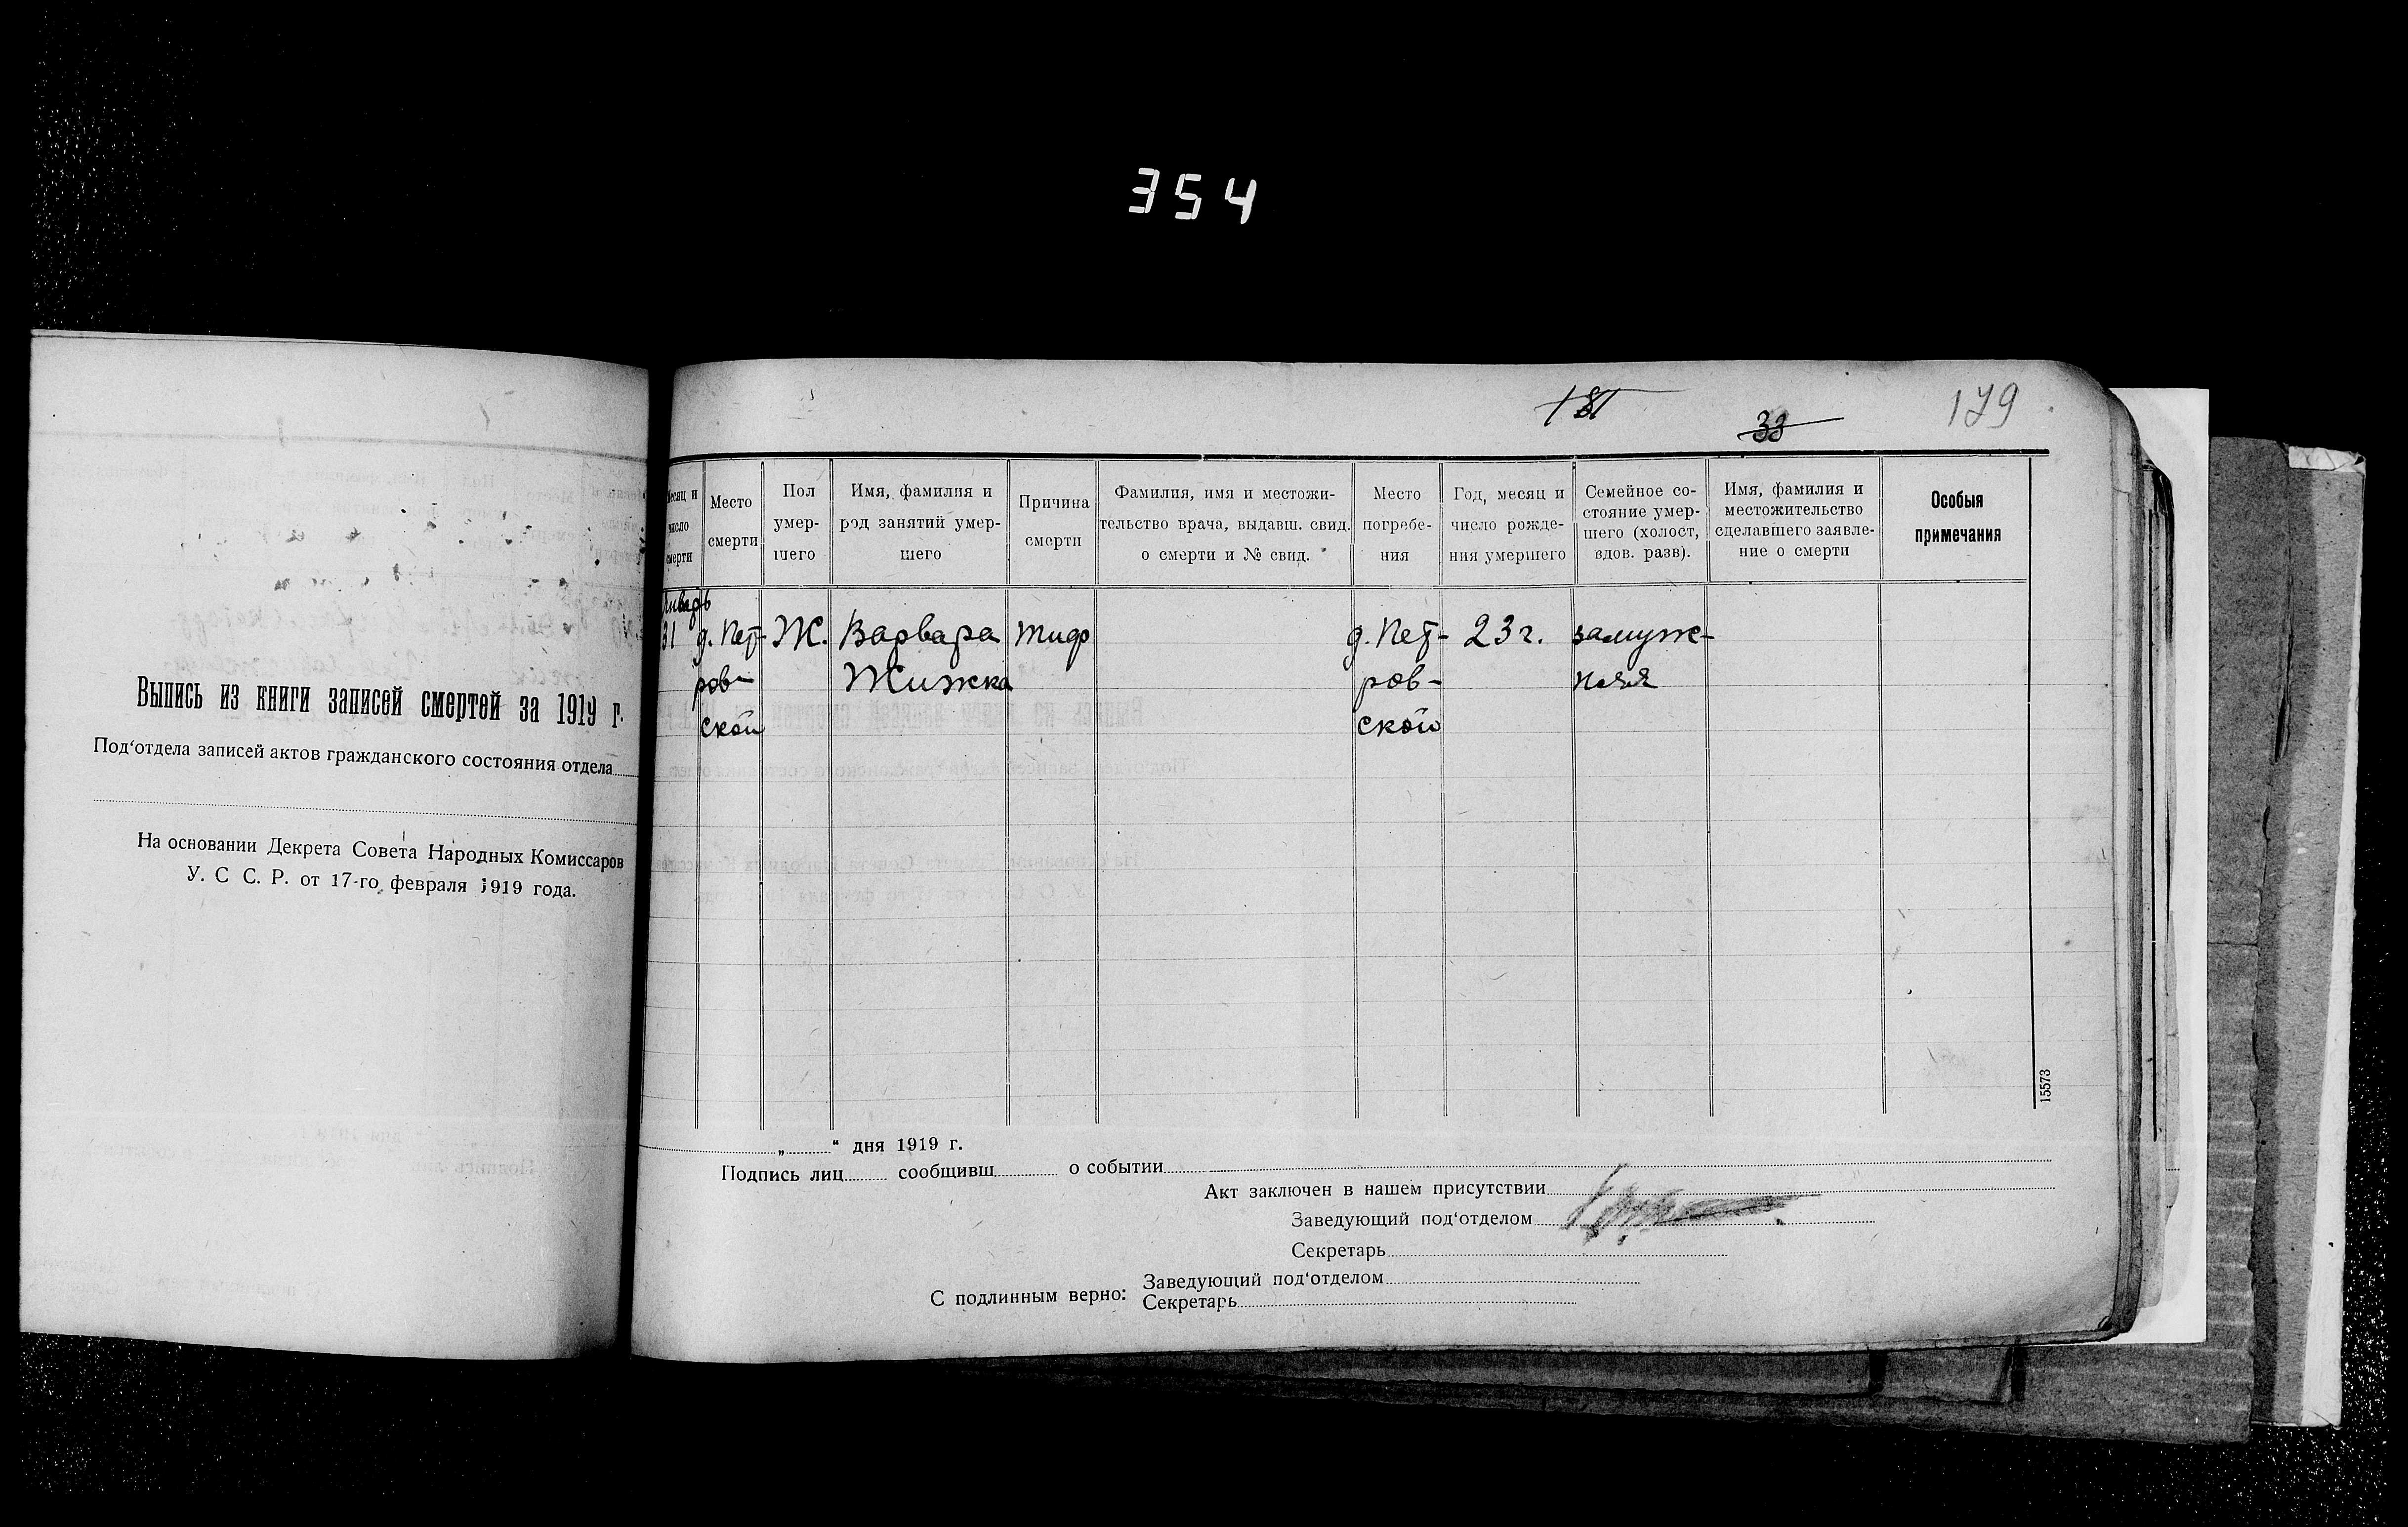 354
181
33
179
Выпись из книги записей смертей за 1919 г.
Под'отдела записей актов гражданского состояния отдела
На основании Декрета Совета Народных Комиссаров
У. С С. Р. от 17-го февраля 1919 года.
Месяц и число смерти
Место смерти
Пол умер-шего
Имя, фамилия и род занятий умер-шего
Причина смерти
Фамилия, имя и местожи-тельство врача, выдавш. свид. о смерти и № свид.
Место погребе-ния
Год, месяц и число рожде-ния умершего
Семейное со-стояние умер-шего (холост, вдов. разв).
Имя, фамилия и местожительство сделавшего заявле-ние о смерти
Особыя примечания
Январь
31 д. Пет- Ж. Варвара Тиф д. Пет- 23 г. замуж-
ров- Жижка ров- няя
ской ской
„ “ дня 1919 г.
Подпись лиц сообщивш о событии
Акт заключен в нашем присутствии
Заведующий под'отделом
Секретарь
С подлинным верно: Заведующий под'отделом
Секретарь
15573